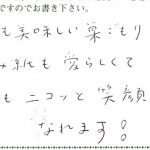 ですのでお書き下さい。
も美味しい巣ごもり
み紙も愛らしくて
もニコッと笑顔
なれます!